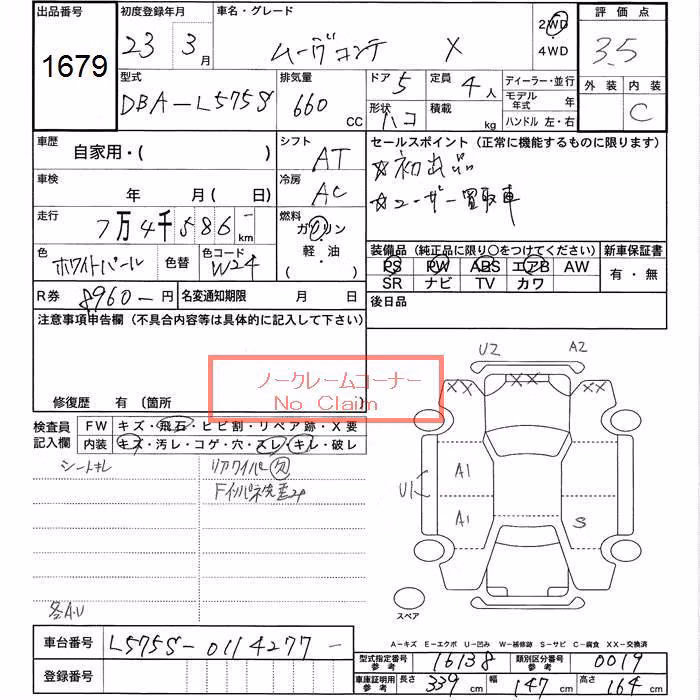 出品番号
1679
初度登録年月
23 年 3 月
車名・グレード
ムーヴコンテ X
2WD
4WD
評価点
3.5
外装 内装
C
型式
DBA-L575S
排気量
660 CC
ドア 5
形状 ハコ
定員 4 人
積載 kg
ディーラー・並行
モデル年式 年
ハンドル 左・右
車歴
自家用・( )
シフト
AT
車検
年 月( 日)
冷房
AC
走行
7万4千586 km
燃料
ガソリン
軽・油
色
ホワイトパール
色替
色コード
W24
R券
8960- 円
名変通知期限 月 日
セールスポイント (正常に機能するものに限ります)
☆初出品
☆ユーザー買取車
装備品 (純正品に限り○をつけてください)
PS PW ABS エアB AW
SR ナビ TV カワ
新車保証書
有・無
後日品
注意事項申告欄 (不具合内容等は具体的に記入して下さい)
修復歴 有 (箇所 )
ノークレームコーナー
No Claim
検査員記入欄
FW キズ・飛石・ヒビ割・リペア跡・X要
内装 キズ・汚レ・コゲ・穴・スレ・キレ・破レ
シートキレ
リアワイパー欠
各A.U
U2 A2
XX XX XX
U1
A1
A1
S
スペア
A-キズ E-エクボ U-凹み W-補修跡 S-サビ C-腐食 XX-交換済
車台番号
L575S-0114277-
登録番号
型式指定番号 参考
16138
類別区分番号 参考
0019
車庫証明用 参考
長さ 339 cm
幅 147 cm
高さ 164 cm